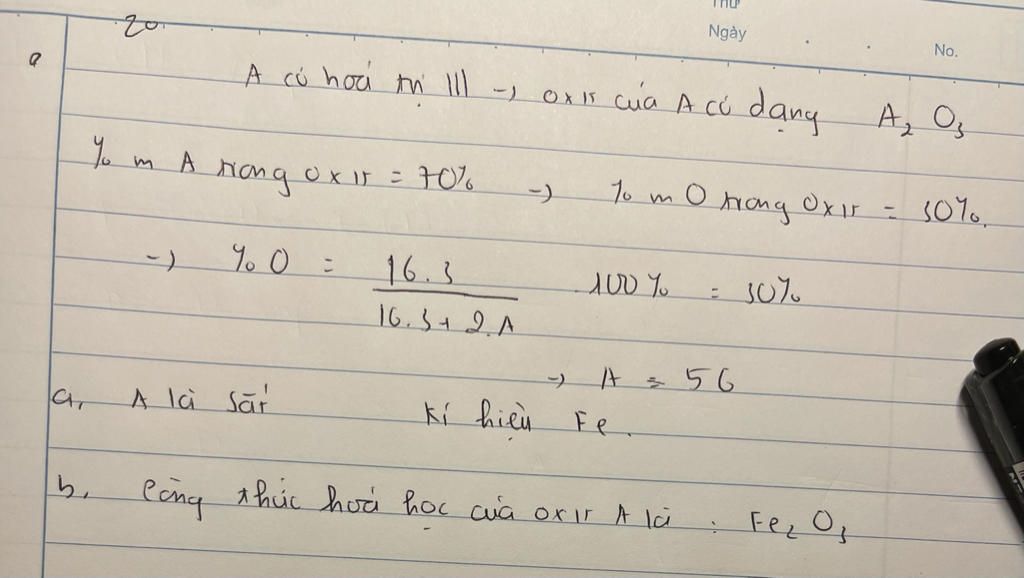 Thứ
Ngày . . No.
20.
A có hoá trị III → oxit của A có dạng A₂O₃
% m A trong oxit = 70% → % m O trong oxit = 30%.
→ % O = 16.3 / 16.3 + 2.A .100% = 30%
→ A = 56
a, A là sắt Kí hiệu Fe.
b, Công thức hoá học của oxit A là : Fe₂O₃